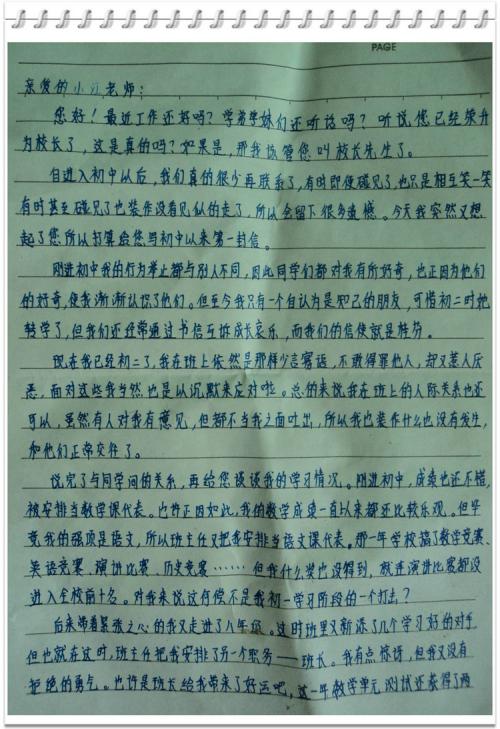 PAGE
亲爱的小江老师：
您好！最近工作还好吗？学弟学妹们还听话吗？听说您已经荣升
为校长了，这是真的吗？如果是，那我该管您叫校长先生了。
自进入初中以后，我们真的很少再联系了，有时即便碰见了，也只是相互笑一笑
有时甚至碰见了也装作没看见似的走了，所以会留下很多遗憾。今天我突然又想
起了您所以打算给您写初中以来第一封信。
刚进初中我的行为举止都与别人不同，因此同学们都对我有所好奇，也正因为他们
的好奇，使我渐渐认识了他们。但至今我只有一个自认为是知己的朋友，可惜初二时她
转学了，但我们还经常通过书信互诉成长哀乐，而我们的信使就是桂芬。
现在我已经初二了，我在班上依然是那样少言寡语，不敢得罪他人，却又惹人厌
恶，面对这些我当然也是以沉默来反对啦。总的来说我在班上的人际关系也还
可以，虽然有人对我有意见，但都不当我之面吐出，所以我也装作什么也没有发生，
和他们正常交往了。
说完了与同学间的关系，再给您谈谈我的学习情况。刚进初中，成绩也还不错，
被安排当数学课代表。也许正因如此，我的数学成绩一直以来都还比较乐观。但毕
竟我的强项是语文，所以班主任又把我安排当语文课代表。那一年学校搞了数学竞赛、
英语竞赛、演讲比赛、历史竞赛……但我什么奖也没得到，就连演讲比赛都没
进入全校前十名。对我来说这何尝不是我初一学习阶段的一个打击？
后来带着紧张之心的我又走进了八年级。这时班里又新添了几个学习好的对手
但也就在这时，班主任把我安排了另一个职务——班长。我有点惊讶，但我又没有
拒绝的勇气。也许是班长给我带来了好运吧，这一年数学单元测试还获得了两